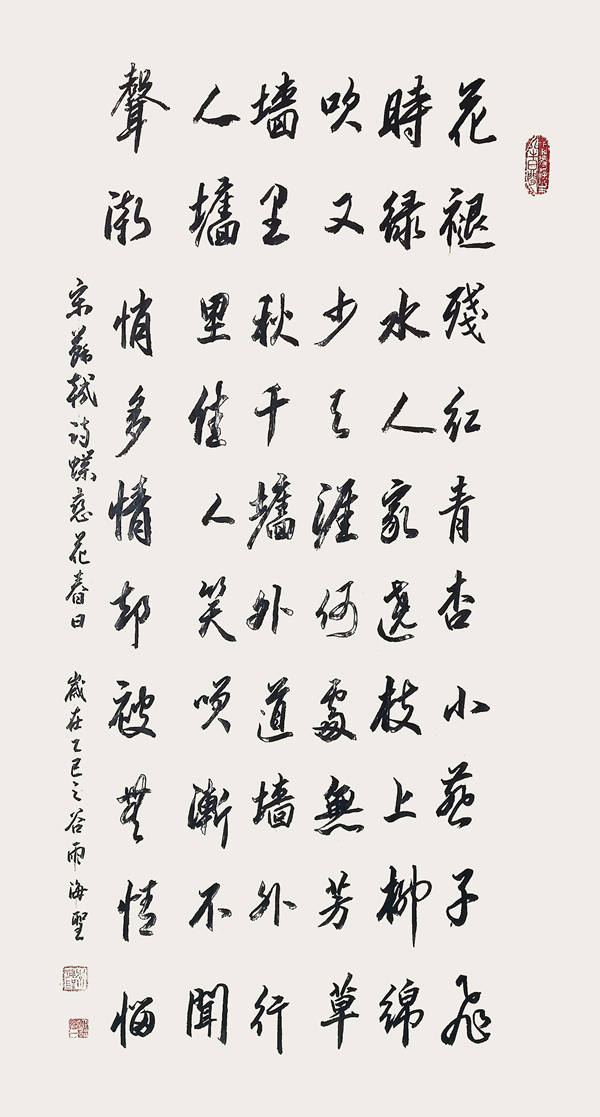 花褪殘红青杏小燕子飛
時绿水人家遶枝上柳綿
吹又少天涯何處無芳草
墻里秋千墻外道墻外行
人墻里佳人笑咲漸不聞
聲漸悄多情却被無情惱
宋蘇軾詩蝶戀花春日 歲在乙巳之谷雨海聖